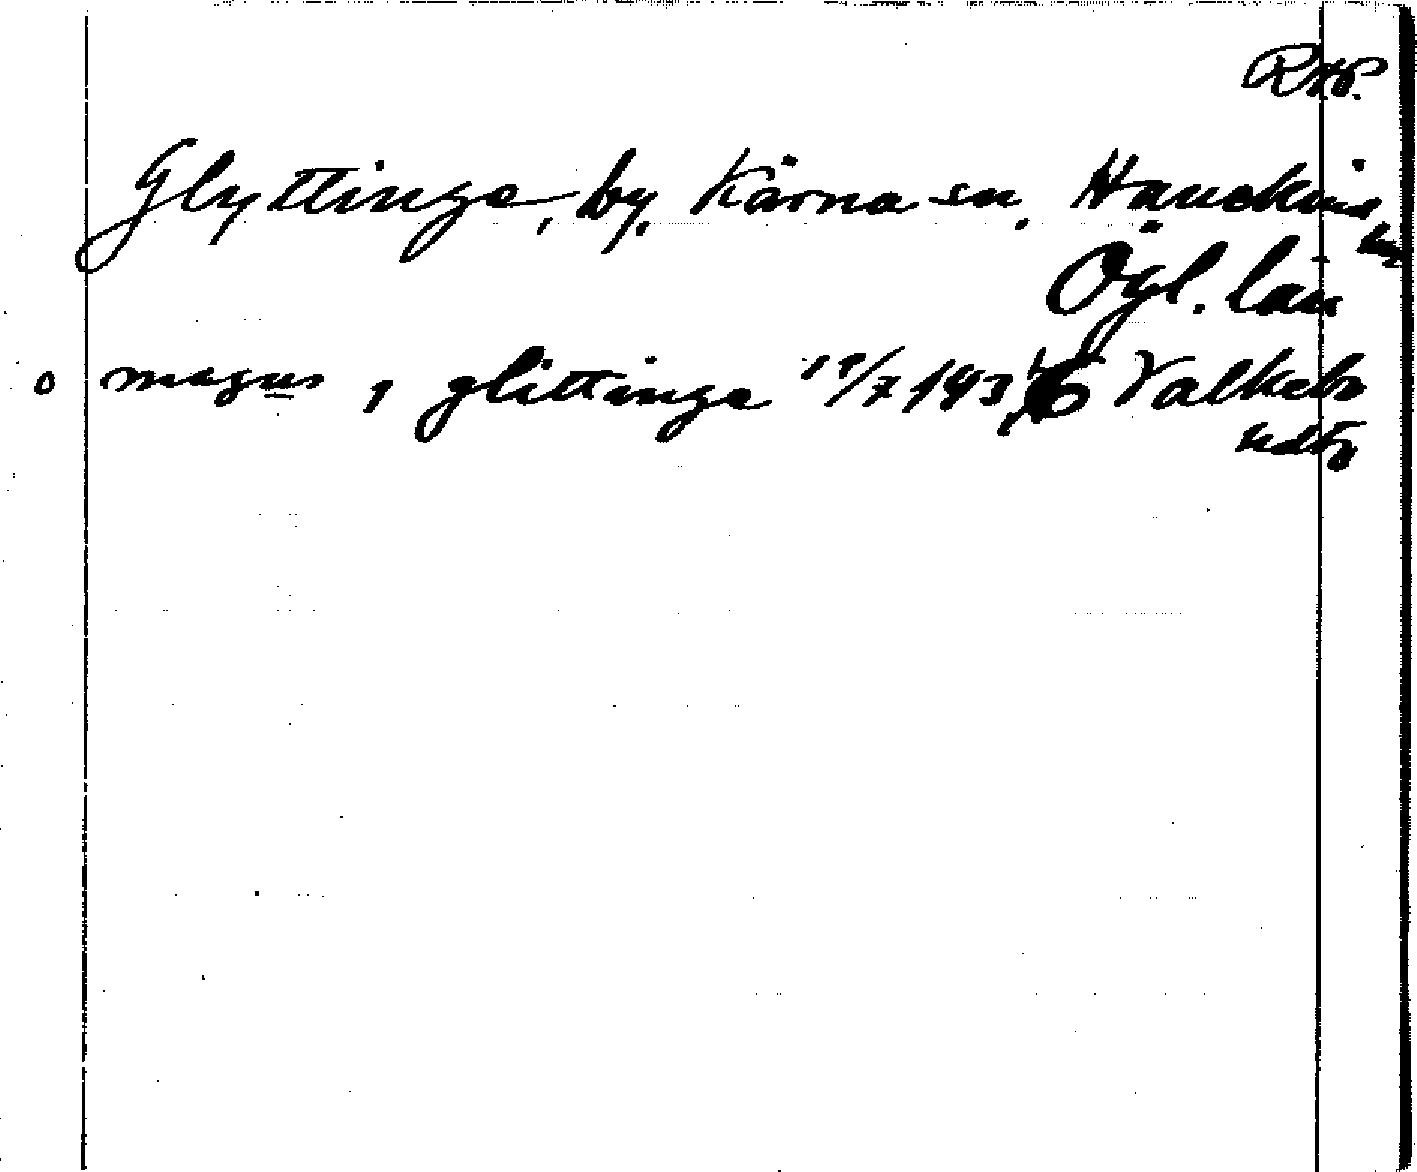 RAP.
Glyttinge, by, Kärna sn, Hanekinds
hd
Ögl. län
o magnus j glittinge 19/7 1436 Valkebo
hdtg